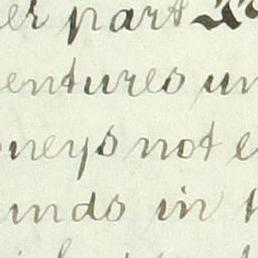 er part
entures un
oneys not e
unds in t